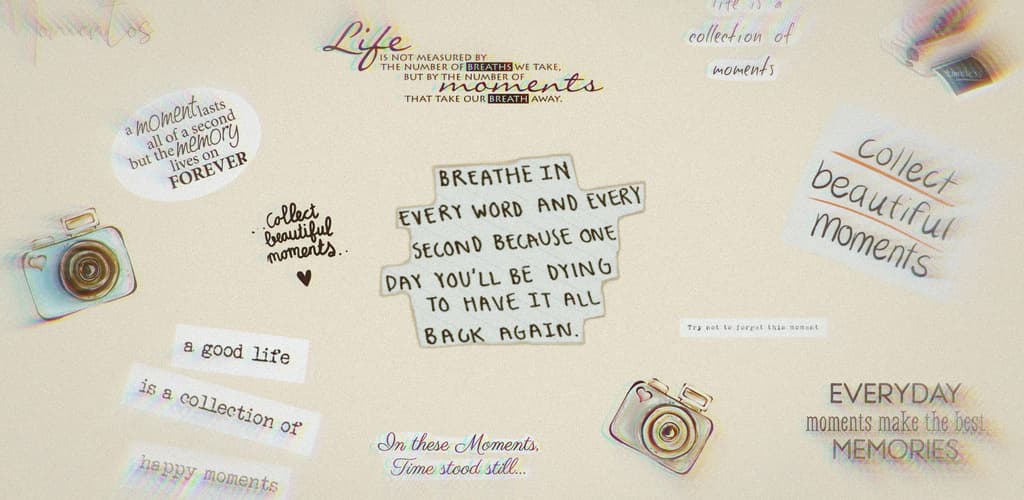 Momentos
Life
IS NOT MEASURED BY
THE NUMBER OF BREATHS WE TAKE,
BUT BY THE NUMBER OF
moments
THAT TAKE OUR BREATH AWAY.
life is a
collection of
moments
timeless
a moment lasts
all of a second
but the memory
lives on
FOREVER
..collect
beautiful
moments..
BREATHE IN
EVERY WORD AND EVERY
SECOND BECAUSE ONE
DAY YOU'LL BE DYING
TO HAVE IT ALL
BACK AGAIN.
collect
beautiful
moments
Try not to forget this moment
a good life
is a collection of
happy moments
In these Moments,
Time stood still...
EVERYDAY
moments make the best
MEMORIES